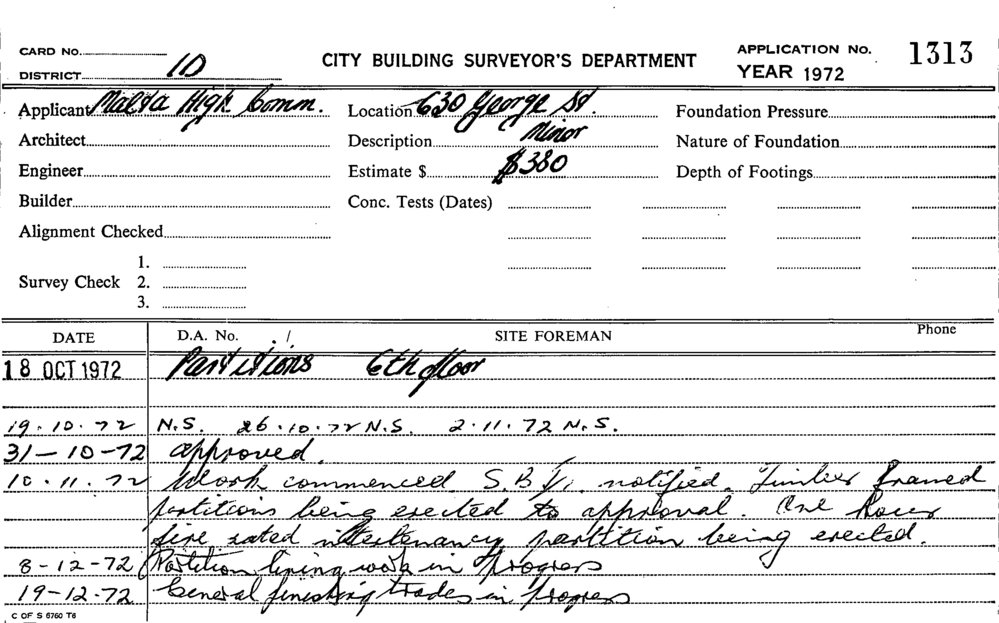 CARD No.
DISTRICT 1D
CITY BUILDING SURVEYOR'S DEPARTMENT
APPLICATION No. 1313
YEAR 1972
Applicant Malta High Comm.
Location 630 George St.
Foundation Pressure
Architect
Description Minor
Nature of Foundation
Engineer
Estimate $ $380
Depth of Footings
Builder
Conc. Tests (Dates)
Alignment Checked
Survey Check 1.
2.
3.
DATE D.A. No. / SITE FOREMAN Phone
18 OCT 1972 Partitions 6th floor
19.10.72 N.S. 26.10.72 N.S. 2.11.72 N.S.
31-10-72 approved.
10.11.72 Work commenced S.B. notified. Timber framed
partitions being erected to approval. One hour
fire rated intertenancy partition being erected.
8-12-72 Partition lining work in progress
19-12-72 General finishing trades in progress
C OF S 6760 T6